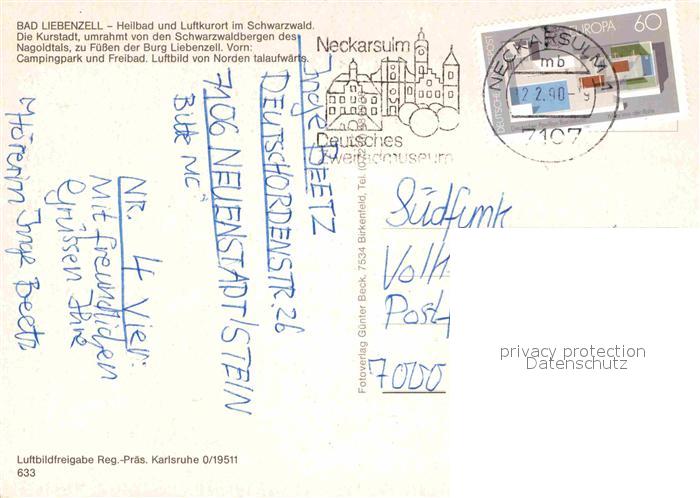 BAD LIEBENZELL – Heilbad und Luftkurort im Schwarzwald.
Die Kurstadt, umrahmt von den Schwarzwaldbergen des
Nagoldtals, zu Füßen der Burg Liebenzell. Vorn:
Campingpark und Freibad. Luftbild von Norden talaufwärts.
Neckarsulm
Deutsches
Zweiradmuseum
NECKARSULM 1
mb
12.2.90-9
7107
EUROPA 60
DEUTSCHE
POST
Inge BEETZ
DEUTSCHORDENSTR. 26
7106 NEUENSTADT/STEIN
Bitte MC
NR. 4 Vier:
Mit freundlichen
Grüssen Ihre
Hörerin Inge Beetz
Fotoverlag Günter Beck, 7534 Birkenfeld, Tel.
Südfunk
Volk
Post
7000
privacy protection
Datenschutz
Luftbildfreigabe Reg.-Präs. Karlsruhe 0/19511
633